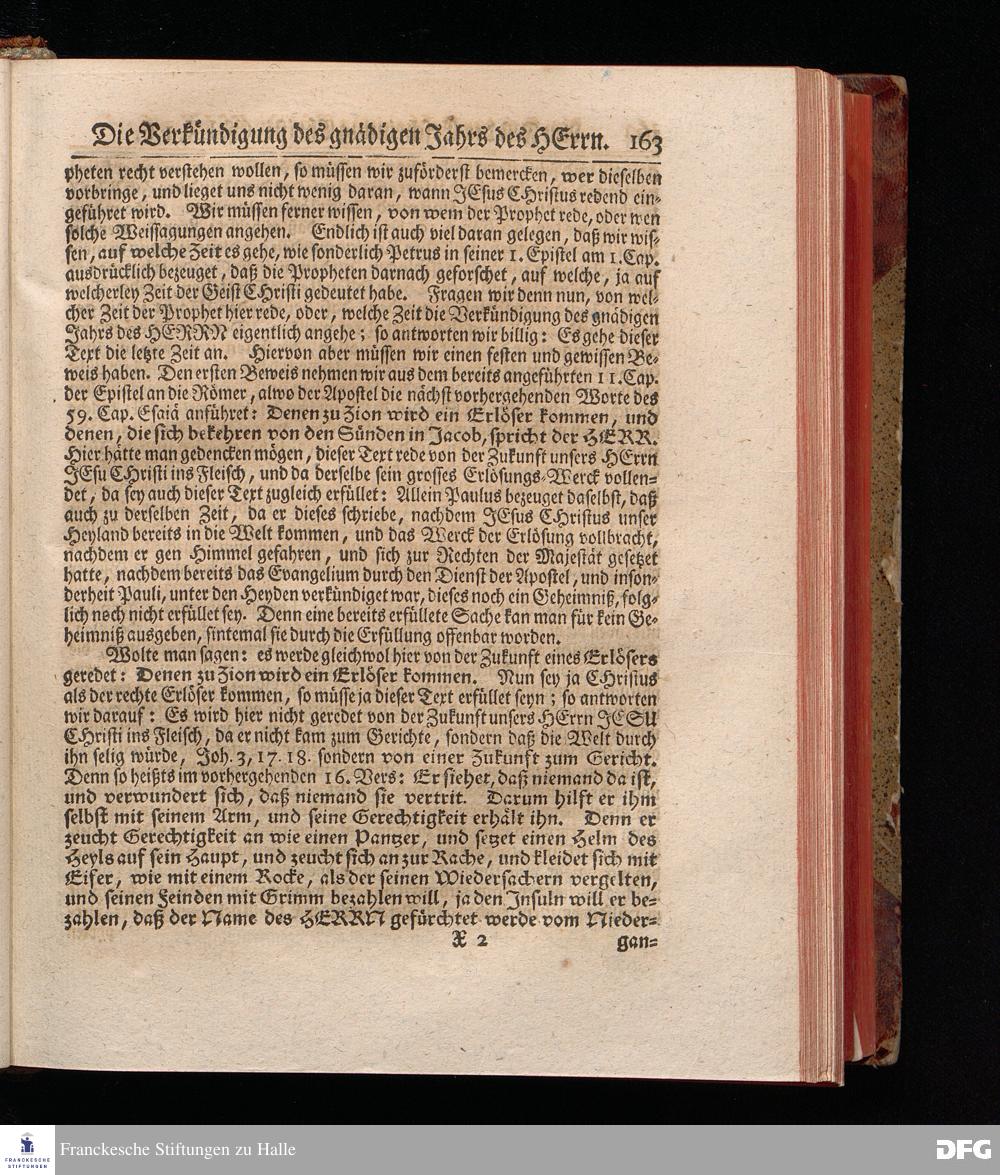 Die Verkündigung des gnädigen Jahrs des HErrn. 163
pheten recht verstehen wollen, so müssen wir zuförderst bemercken, wer dieselben
vorbringe, und lieget uns nicht wenig daran, wann JEsus CHristus redend ein-
geführet wird. Wir müssen ferner wissen, von wem der Prophet rede, oder wen
solche Weissagungen angehen. Endlich ist auch viel daran gelegen, daß wir wis-
sen, auf welche Zeit es gehe, wie sonderlich Petrus in seiner 1. Epistel am 1. Cap.
ausdrücklich bezeuget, daß die Propheten darnach geforschet, auf welche, ja auf
welcherley Zeit der Geist CHristi gedeutet habe. Fragen wir denn nun, von wel-
cher Zeit der Prophet hier rede, oder, welche Zeit die Verkündigung des gnädigen
Jahrs des HERRN eigentlich angehe; so antworten wir billig: Es gehe dieser
Text die letzte Zeit an. Hiervon aber müssen wir einen festen und gewissen Be-
weis haben. Den ersten Beweis nehmen wir aus dem bereits angeführten 11. Cap.
der Epistel an die Römer, alwo der Apostel die nächst vorhergehenden Worte des
59. Cap. Esaiä anführet: Denen zu Zion wird ein Erlöser kommen, und
denen, die sich bekehren von den Sünden in Jacob, spricht der HERR.
Hier hätte man gedencken mögen, dieser Text rede von der Zukunft unsers HErrn
JEsu CHristi ins Fleisch, und da derselbe sein grosses Erlösungs-Werck vollen-
det, da sey auch dieser Text zugleich erfüllet: Allein Paulus bezeuget daselbst, daß
auch zu derselben Zeit, da er dieses schriebe, nachdem JEsus CHristus unser
Heyland bereits in die Welt kommen, und das Werck der Erlösung vollbracht,
nachdem er gen Himmel gefahren, und sich zur Rechten der Majestät gesetzet
hatte, nachdem bereits das Evangelium durch den Dienst der Apostel, und inson-
derheit Pauli, unter den Heyden verkündiget war, dieses noch ein Geheimniß, folg-
lich noch nicht erfüllet sey. Denn eine bereits erfüllete Sache kan man für kein Ge-
heimniß ausgeben, sintemal sie durch die Erfüllung offenbar worden.
Wolte man sagen: es werde gleichwol hier von der Zukunft eines Erlösers
geredet: Denen zu Zion wird ein Erlöser kommen. Nun sey ja CHristus
als der rechte Erlöser kommen, so müsse ja dieser Text erfüllet seyn; so antworten
wir darauf: Es wird hier nicht geredet von der Zukunft unsers HErrn JESU
CHristi ins Fleisch, da er nicht kam zum Gerichte, sondern daß die Welt durch
ihn selig würde, Joh. 3, 17. 18. sondern von einer Zukunft zum Gericht.
Denn so heißts im vorhergehenden 16. Vers: Er siehet, daß niemand da ist,
und verwundert sich, daß niemand sie vertrit. Darum hilft er ihm
selbst mit seinem Arm, und seine Gerechtigkeit erhält ihn. Denn er
zeucht Gerechtigkeit an wie einen Pantzer, und setzet einen Helm des
Heyls auf sein Haupt, und zeucht sich an zur Rache, und kleidet sich mit
Eifer, wie mit einem Rocke, als der seinen Wiedersachern vergelten,
und seinen Feinden mit Grimm bezahlen will, ja den Insuln will er be-
zahlen, daß der Name des HERRN gefürchtet werde vom Nieder-
X 2 gan-
FRANCKESCHE
STIFTUNGEN
Franckesche Stiftungen zu Halle
DFG